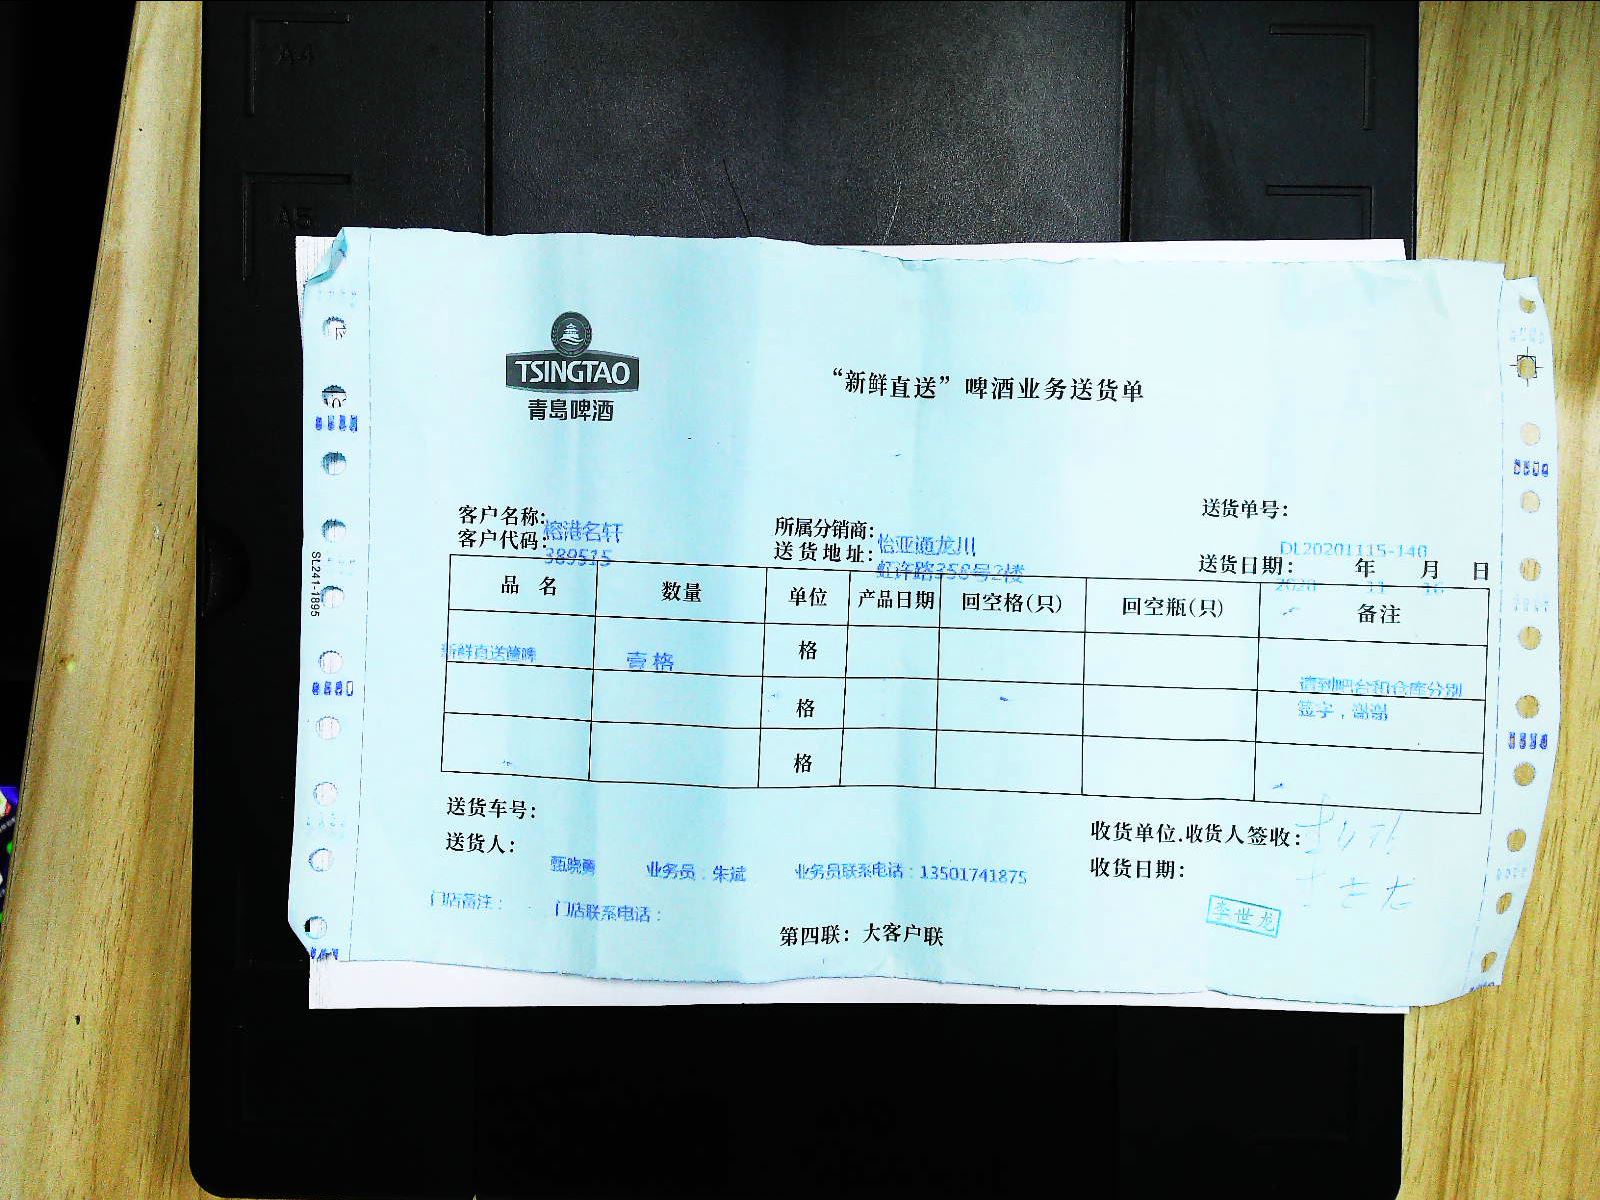 A4
A5
TSINGTAO
青岛啤酒
“新鲜直送”啤酒业务送货单
客户名称: 榕港名轩
所属分销商: 怡亚通龙川
送货单号: DL20201115-140
客户代码: 389515
送货地址: 虹许路358号2楼
送货日期: 2020 年 11 月 16 日
品 名 数量 单位 产品日期 回空格(只) 回空瓶(只) 备注
新鲜直送 壹格 格
请到吧台和仓库分别
格 签字，谢谢
格
送货车号:
送货人: 甄晓勇 业务员：朱斌 业务员联系电话：13501741875
收货单位.收货人签收:
收货日期:
门店备注： 门店联系电话：
李世龙
第四联: 大客户联
SL241-1895